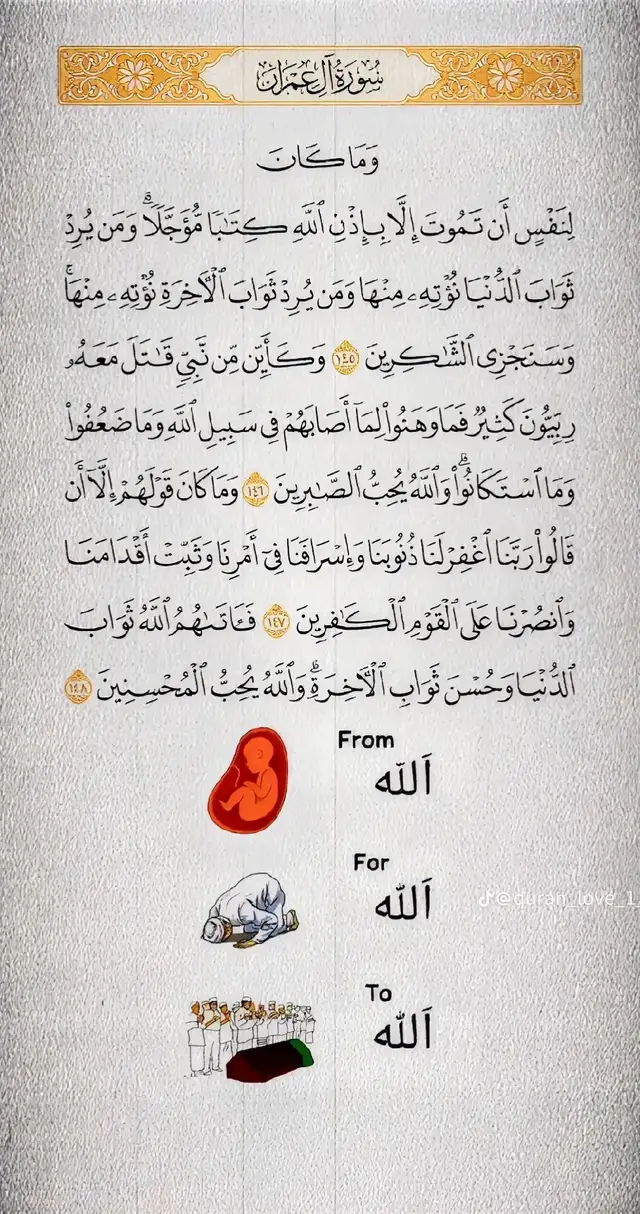 سُورَةُ آلِ عِمْرَان
وَمَا كَانَ
لِنَفْسٍ أَن تَمُوتَ إِلَّا بِإِذْنِ ٱللَّهِ كِتَـٰبًا مُّؤَجَّلًا ۗ وَمَن يُرِدْ
ثَوَابَ ٱلدُّنْيَا نُؤْتِهِۦ مِنْهَا وَمَن يُرِدْ ثَوَابَ ٱلْـَٔاخِرَةِ نُؤْتِهِۦ مِنْهَا ۚ
وَسَنَجْزِى ٱلشَّـٰكِرِينَ ١٤٥ وَكَأَيِّن مِّن نَّبِىٍّ قَـٰتَلَ مَعَهُۥ
رِبِّيُّونَ كَثِيرٌ فَمَا وَهَنُوا۟ لِمَآ أَصَابَهُمْ فِى سَبِيلِ ٱللَّهِ وَمَا ضَعُفُوا۟
وَمَا ٱسْتَكَانُوا۟ ۗ وَٱللَّهُ يُحِبُّ ٱلصَّـٰبِرِينَ ١٤٦ وَمَا كَانَ قَوْلَهُمْ إِلَّآ أَن
قَالُوا۟ رَبَّنَا ٱغْفِرْ لَنَا ذُنُوبَنَا وَإِسْرَافَنَا فِىٓ أَمْرِنَا وَثَبِّتْ أَقْدَامَنَا
وَٱنصُرْنَا عَلَى ٱلْقَوْمِ ٱلْكَـٰفِرِينَ ١٤٧ فَـَٔاتَىٰهُمُ ٱللَّهُ ثَوَابَ
ٱلدُّنْيَا وَحُسْنَ ثَوَابِ ٱلْـَٔاخِرَةِ ۗ وَٱللَّهُ يُحِبُّ ٱلْمُحْسِنِينَ ١٤٨
From
اَللّٰه
For
اَللّٰه
@quran_love_1
To
اَللّٰه